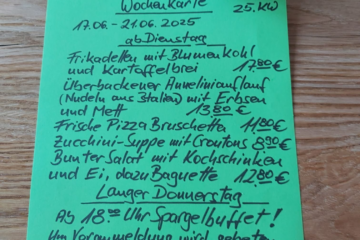 Wochenkarte 25.KW
17.06 – 21.06.2025
ab Dienstag
Frikadellen mit Blumenkohl
und Kartoffelbrei 17,80 €
Überbackener Amelini​auflauf
(Nudeln aus Italien) mit Erbsen
und Mett 13,80 €
Frische Pizza Bruschetta 11,90 €
Zucchini-Suppe mit Croutons 8,90 €
Bunter Salat mit Kochschinken
und Ei, dazu Baguette 12,80 €
Langer Donnerstag
Ab 18.00 Uhr Spargelbuffet!
Um Voranmeldung wird gebeten